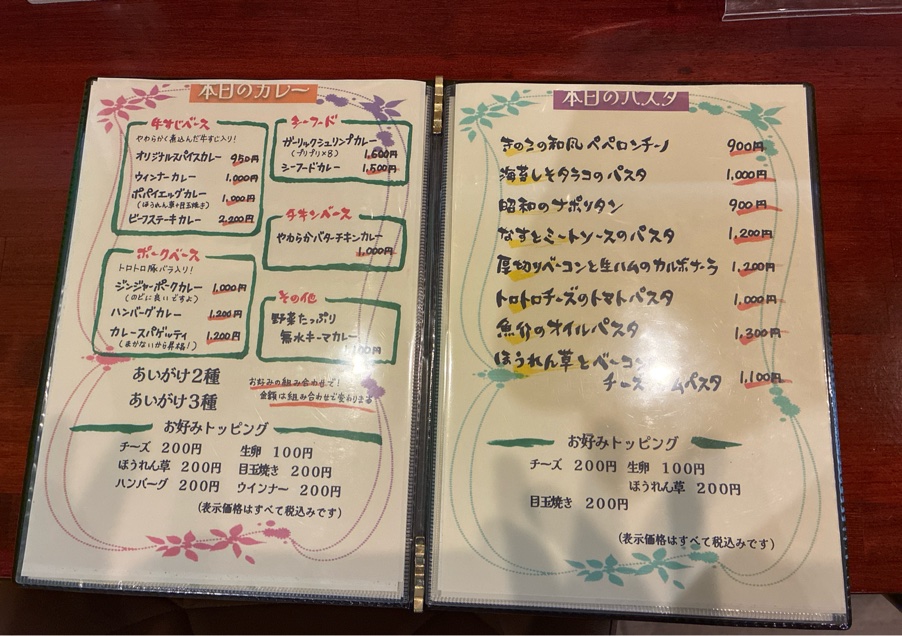 本日のカレー
牛すじベース
やわらかく煮込んだ牛すじ入り!
オリジナルスパイスカレー 950円
ウィンナーカレー 1,000円
ポパイエッグカレー 1,000円
(ほうれん草+目玉焼き)
ビーフステーキカレー 2,200円
シーフード
ガーリックシュリンプカレー
(プリプリ×8) 1,600円
シーフードカレー 1,500円
チキンベース
やわらかバターチキンカレー
1,000円
ポークベース
トロトロ豚バラ入り!
ジンジャーポークカレー 1,000円
(のどに良いですよ)
ハンバーグカレー 1,200円
カレースパゲッティ 1,200円
(まかないから昇格!)
その他
野菜たっぷり
無水キーマカレー
あいがけ2種
あいがけ3種
お好みの組み合わせで!
金額は組み合わせで変わります
お好みトッピング
チーズ 200円 生卵 100円
ほうれん草 200円 目玉焼き 200円
ハンバーグ 200円 ウインナー 200円
(表示価格はすべて税込みです)
本日のパスタ
きのこの和風ペペロンチーノ 900円
海苔しそタラコのパスタ 1,000円
昭和のナポリタン 900円
なすとミートソースのパスタ 1,200円
厚切りベーコンと生ハムのカルボナーラ 1,200円
トロトロチーズのトマトパスタ 1,000円
魚介のオイルパスタ 1,300円
ほうれん草とベーコン
チーズ ムパスタ 1,100円
お好みトッピング
チーズ 200円 生卵 100円
ほうれん草 200円
目玉焼き 200円
(表示価格はすべて税込みです)